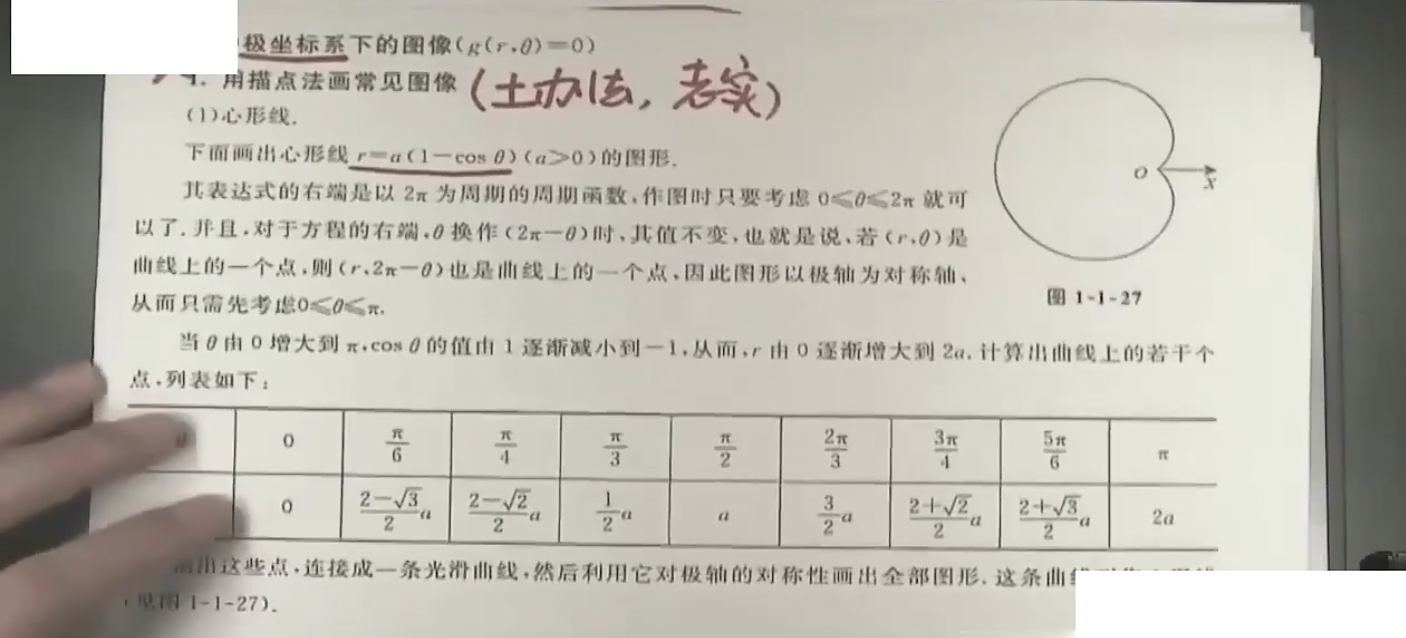 极坐标系下的图像(g(r,θ)=0)
1. 用描点法画常见图像 (土办法, 老实)
(1)心形线.
下面画出心形线 r=a(1-cos θ)(a>0)的图形.
其表达式的右端是以 2π 为周期的周期函数,作图时只要考虑 0≤θ≤2π 就可
以了.并且,对于方程的右端,θ 换作(2π-θ)时,其值不变,也就是说,若(r,θ)是
曲线上的一个点,则(r,2π-θ)也是曲线上的一个点,因此图形以极轴为对称轴,
从而只需先考虑0≤θ≤π.
O x
图 1-1-27
当 θ 由 0 增大到 π,cos θ 的值由 1 逐渐减小到-1,从而,r 由 0 逐渐增大到 2a.计算出曲线上的若干个
点,列表如下:
θ 0 π/6 π/4 π/3 π/2 2π/3 3π/4 5π/6 π
0 2-√3/2 a 2-√2/2 a 1/2 a a 3/2 a 2+√2/2 a 2+√3/2 a 2a
出这些点,连接成一条光滑曲线,然后利用它对极轴的对称性画出全部图形.这条曲
见图 1-1-27).